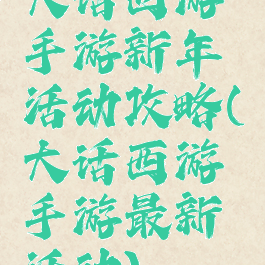 大话西游
手游新年
活动攻略(
大话西游
手游最新
活动)